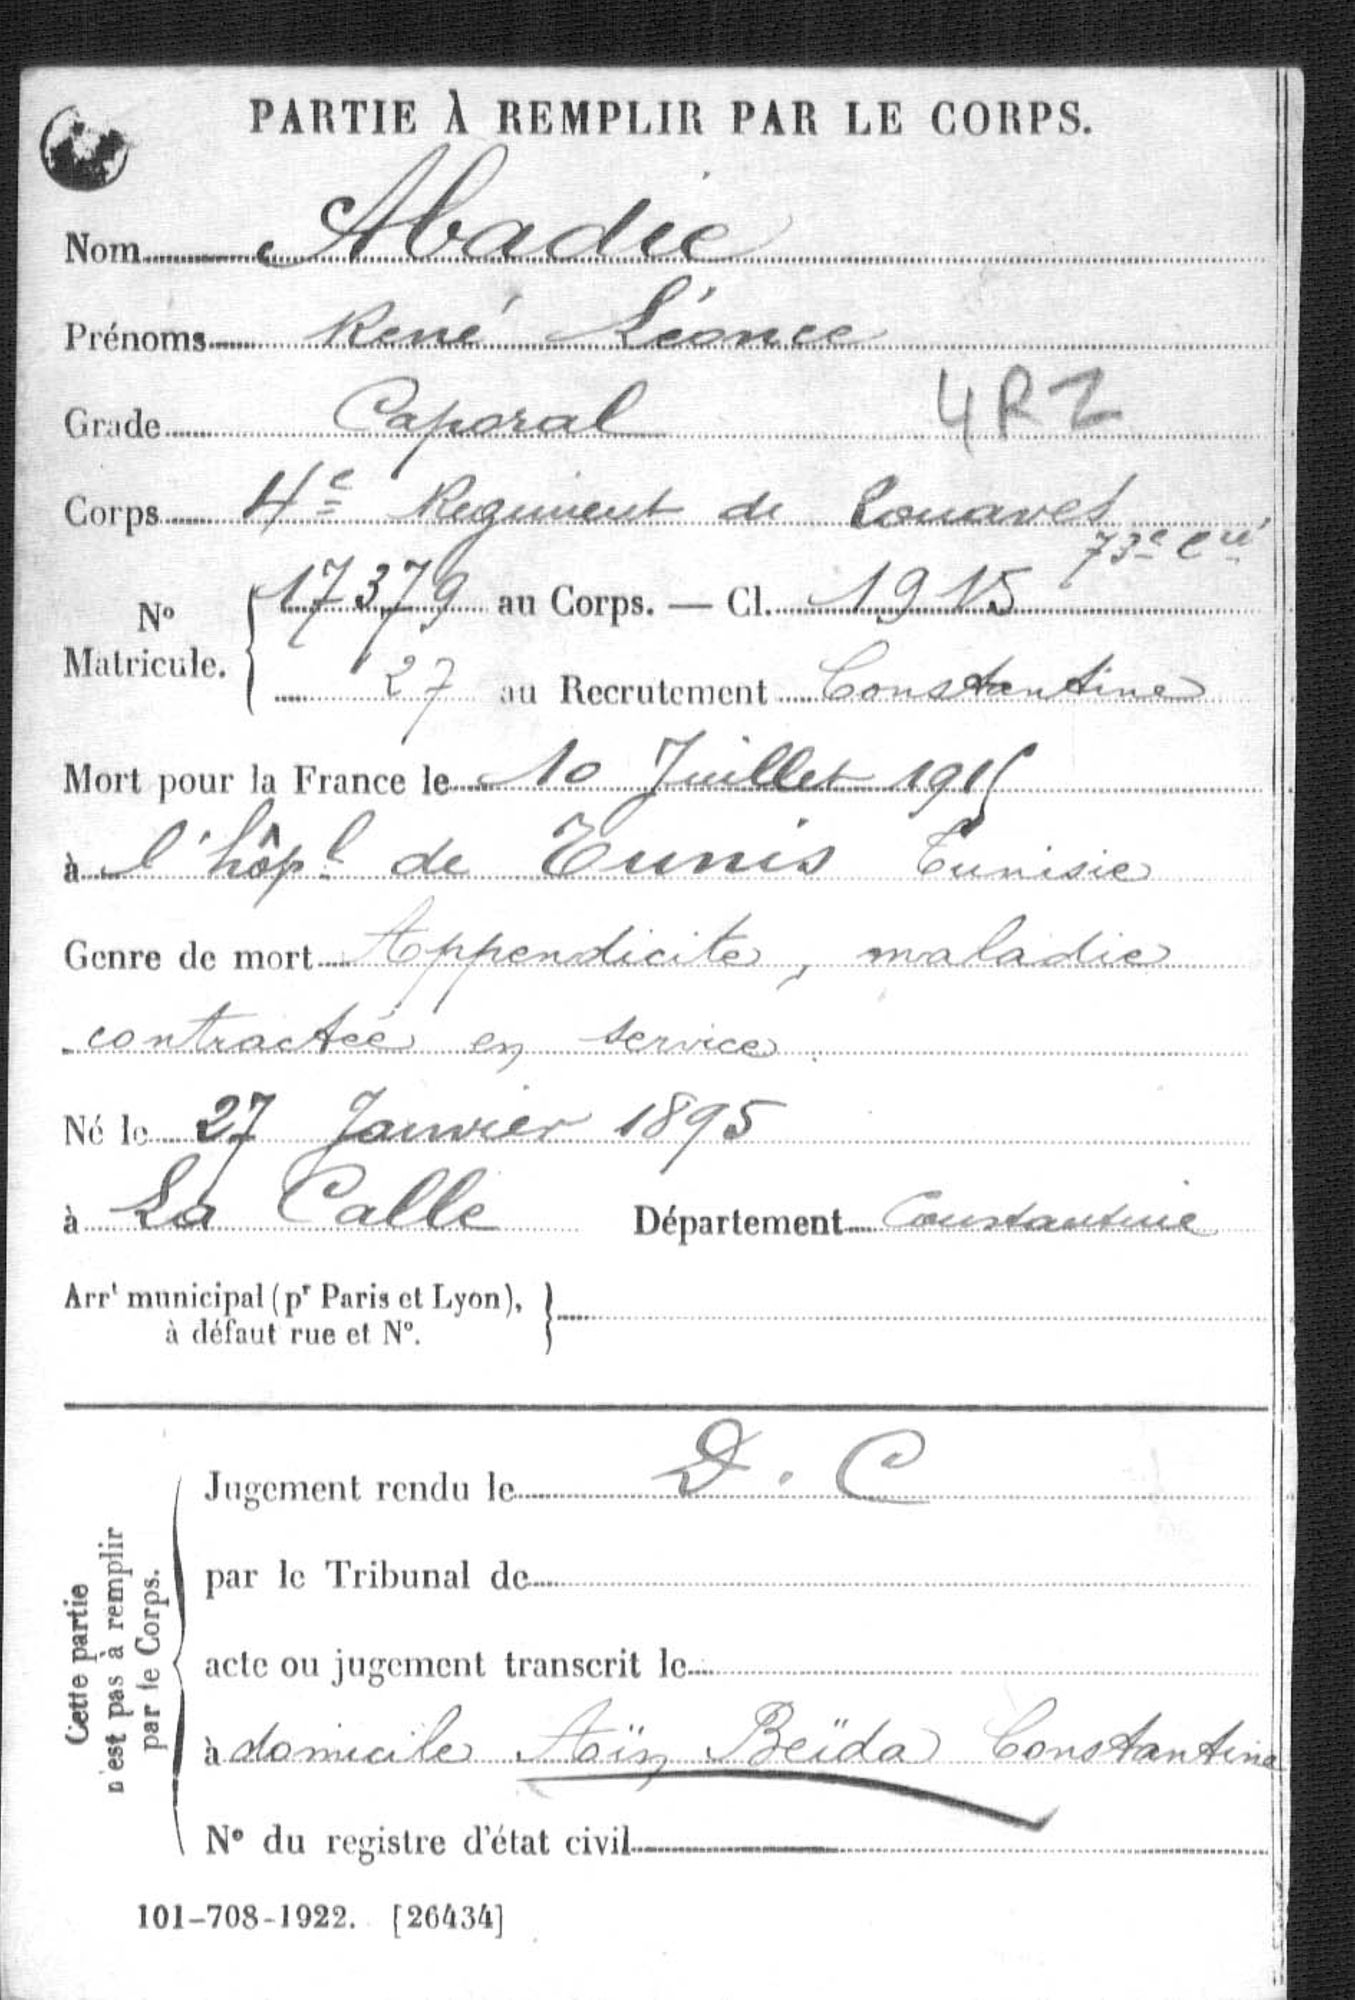 PARTIE À REMPLIR PAR LE CORPS.
Nom Abadie
Prénoms René Léonce
Grade Caporal 4RZ
Corps 4e Regiment de Zouaves
73e Cie
No Matricule. 17379 au Corps. — Cl. 1915
27 au Recrutement Constantine
Mort pour la France le 10 Juillet 1915
à l'hôpl de Tunis Tunisie
Genre de mort Appendicite, maladie
contractée en service.
Né le 27 Janvier 1895
à La Calle Département Constantine
Arrt municipal (pr Paris et Lyon),
à défaut rue et No.
Cette partie
n'est pas à remplir
par le Corps.
Jugement rendu le D. C
par le Tribunal de
acte ou jugement transcrit le
à domicile Aïn Beïda Constantine
No du registre d'état civil
101-708-1922. [26434]